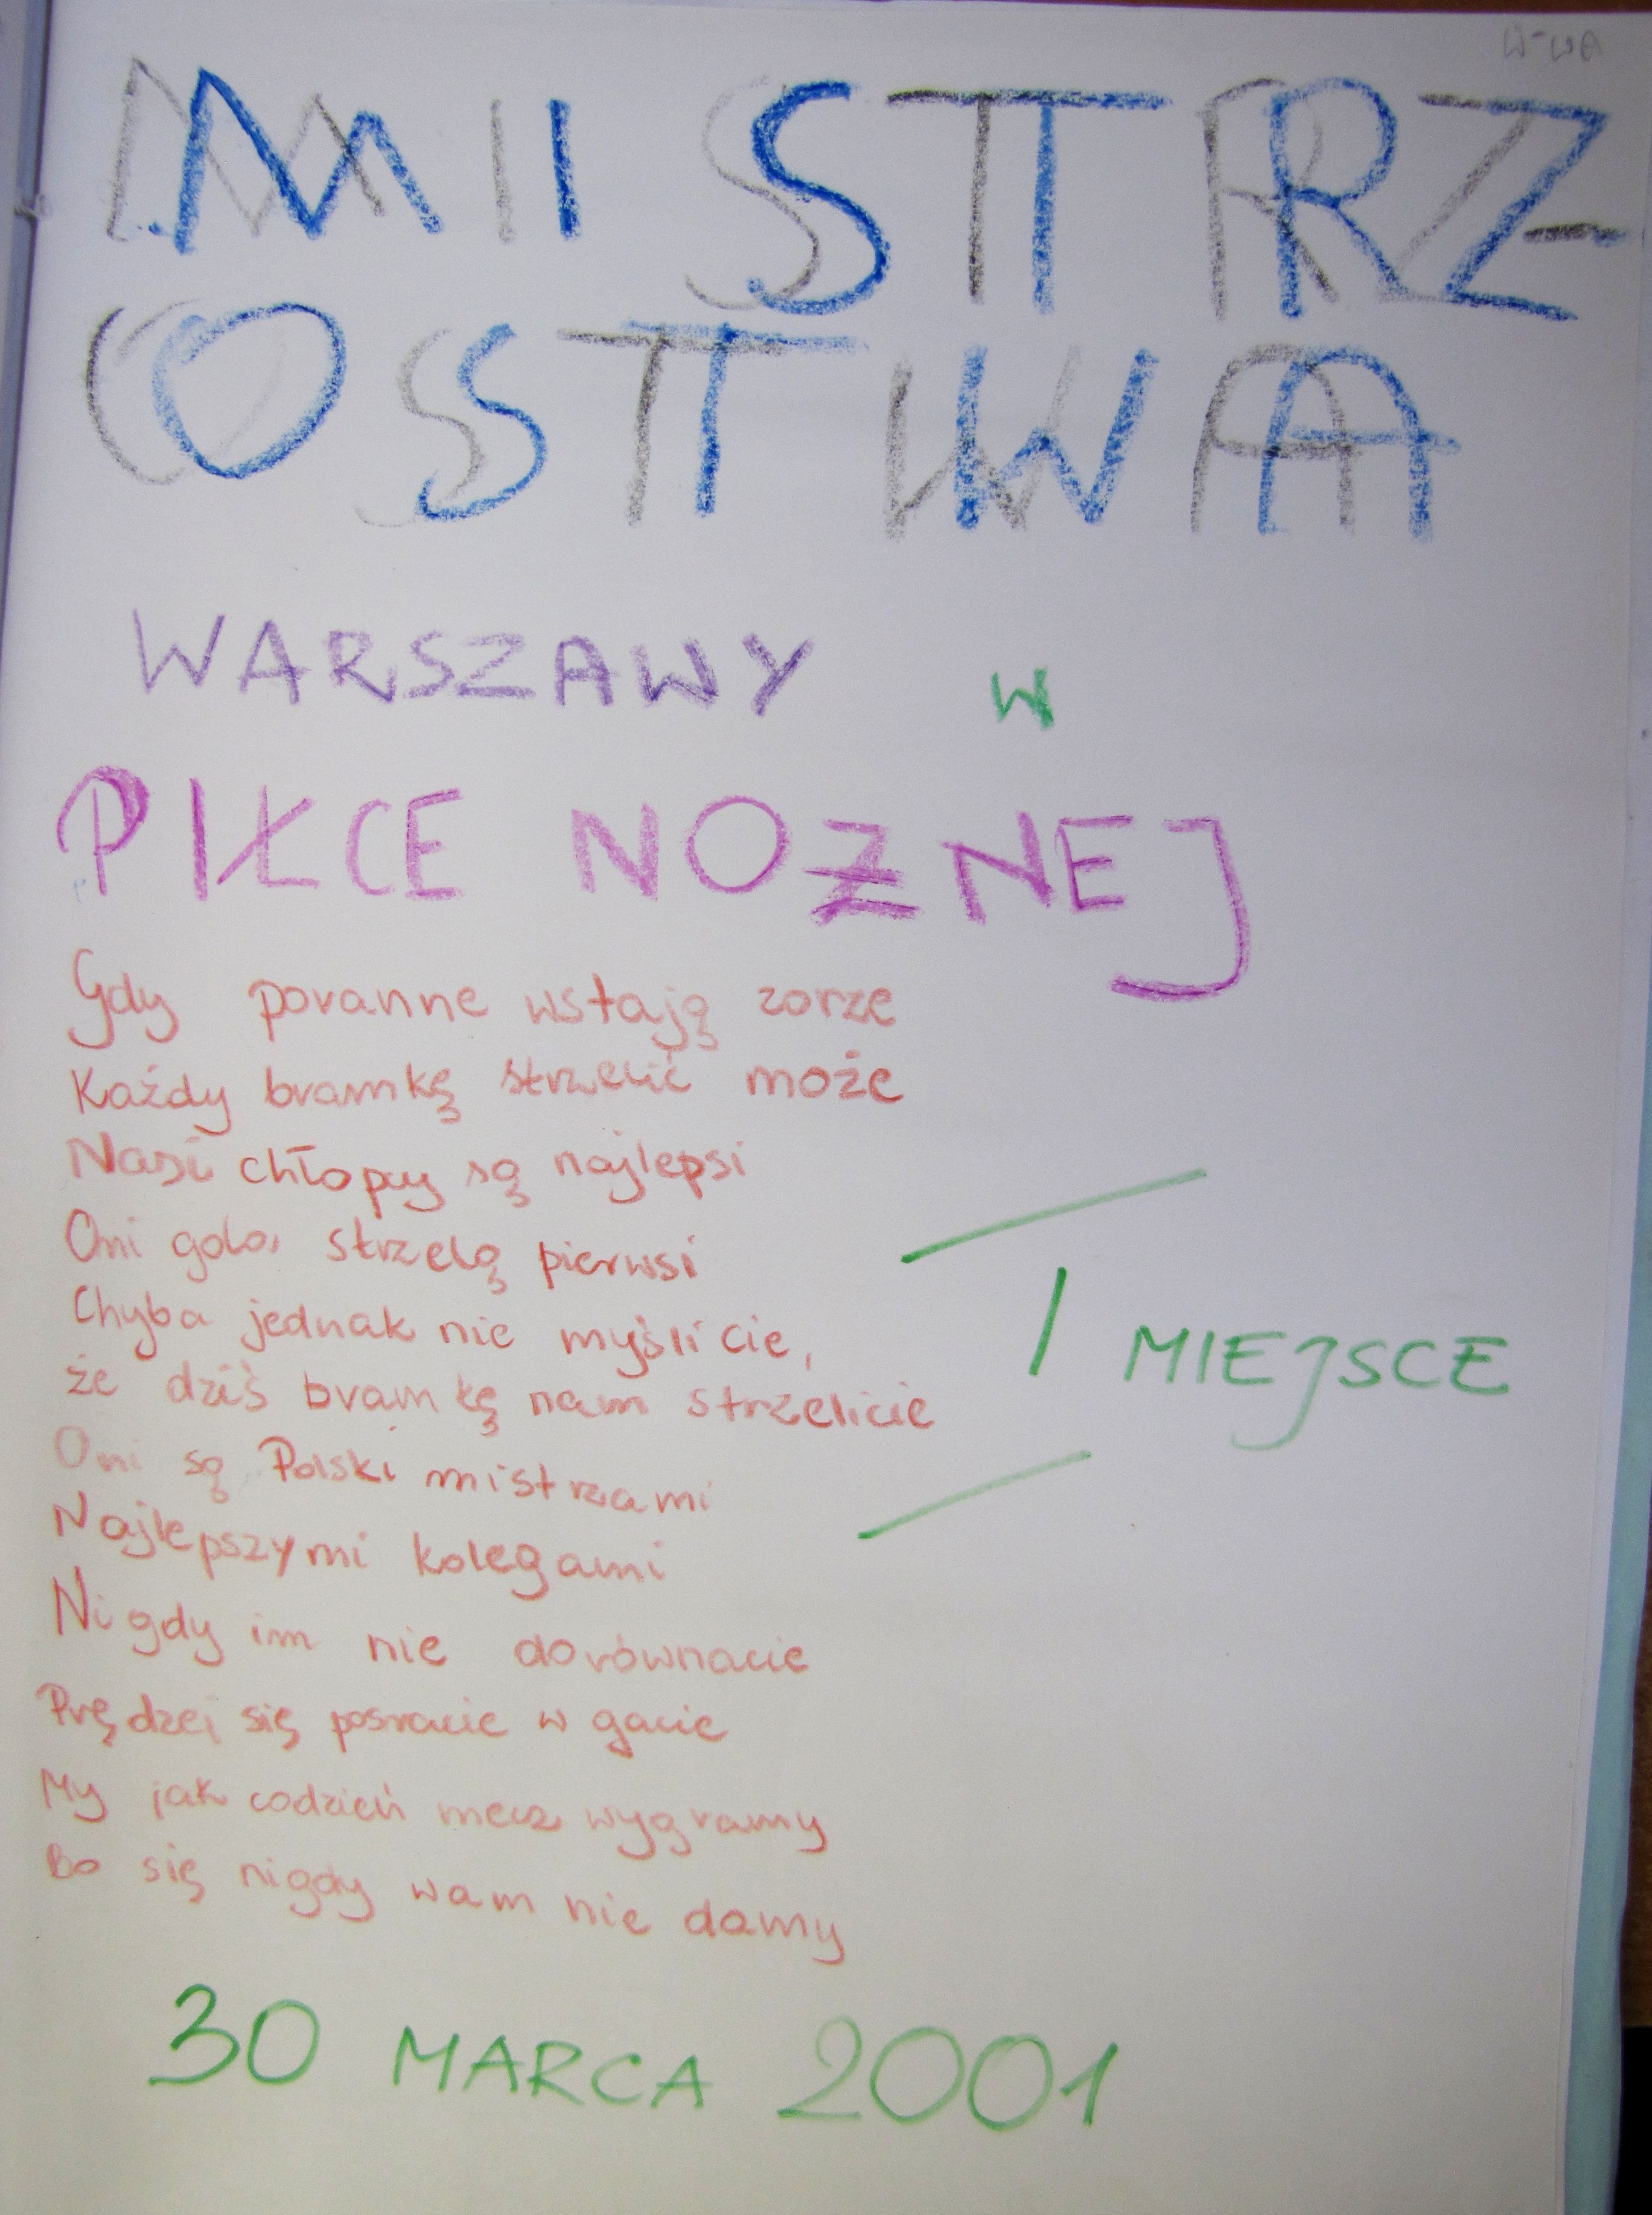 W-WA
MISTRZ-
OSTWA
WARSZAWY w
PIŁCE NOZNEJ
Gdy poranne wstają zorze
Każdy bramkę strzelić może
Nasi chłopcy są najlepsi
Oni gola strzelą pierwsi
Chyba jednak nie myślicie,
że dziś bramkę nam strzelicie
Oni są Polski mistrzami
Najlepszymi kolegami
Nigdy im nie dorównacie
Prędzej się posracie w gacie
My jak codzień mecz wygramy
Bo się nigdy wam nie damy
I MIEJSCE
30 MARCA 2001